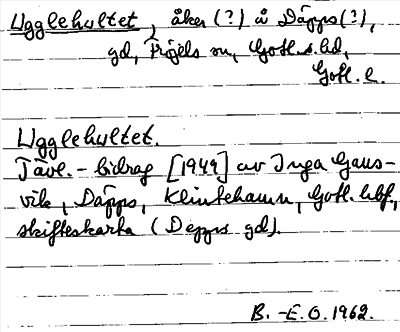 Ugglehultet, åker (?) å Däpps (?),
gd, Fröjels sn, Gotl. s. hd,
Gotl. l.
Ugglehultet.
Tävl.-bidrag [1949] av Inga Gans-
vik, Däpps, Klintehamn, Gotl. hbf.,
skifteskarta (Depps gd).
B.-E.O. 1962.